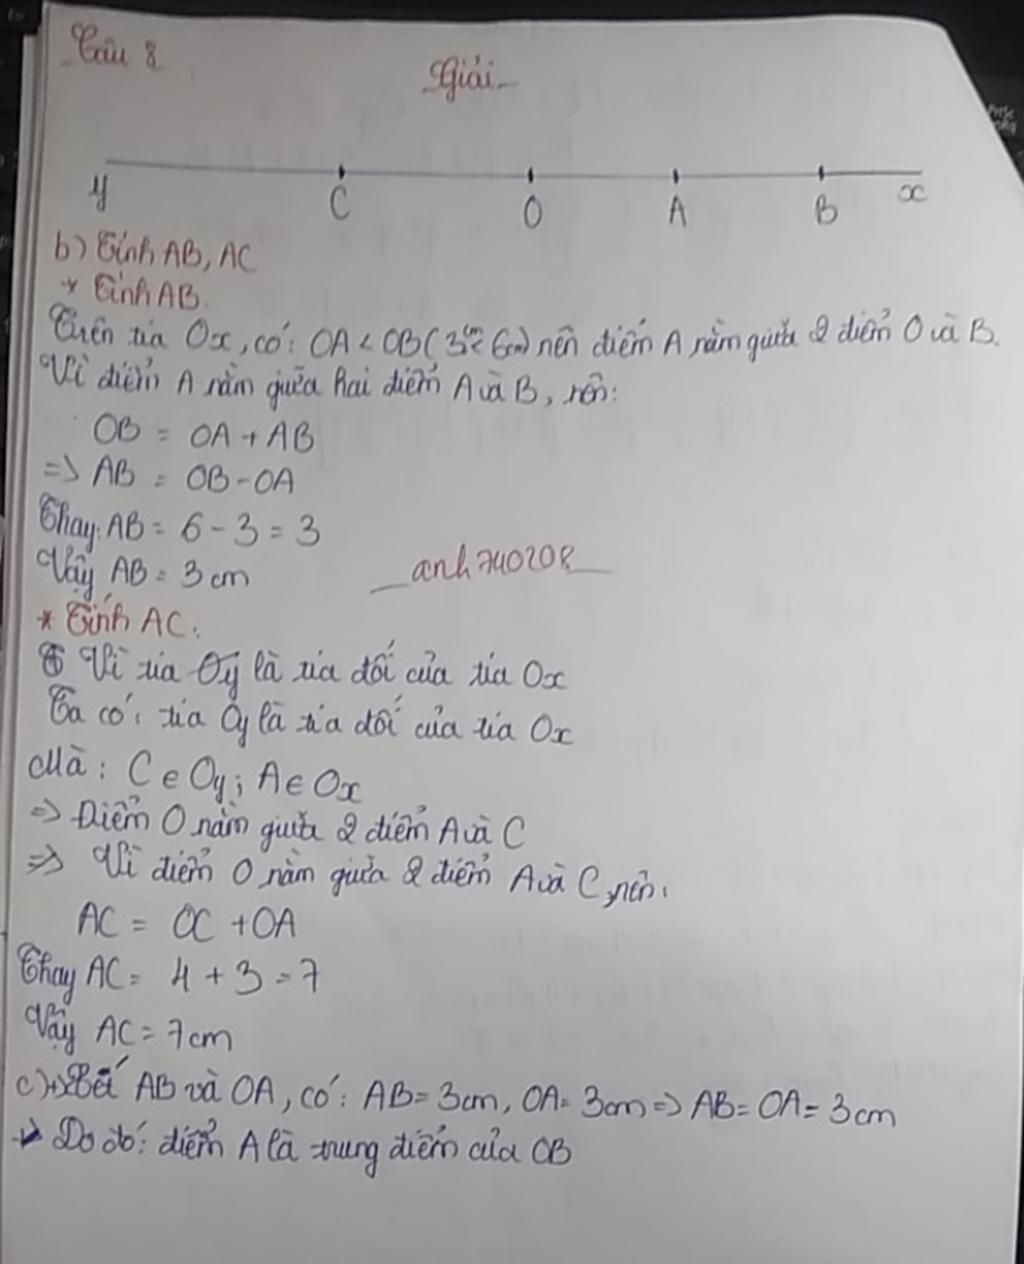 Câu 8
Giải
y C O A B x
b) Tính AB, AC
* Tính AB.
Trên tia Ox, có: OA < OB (3cm < 6cm) nên điểm A nằm giữa 2 điểm O và B.
Vì điểm A nằm giữa hai điểm A và B, nên:
OB = OA + AB
=> AB = OB - OA
Thay: AB = 6 - 3 = 3
Vậy AB = 3 cm
anh740208
* Tính AC:
Vì tia Oy là tia đối của tia Ox
Ta có: tia Oy là tia đối của tia Ox
Mà: C ∈ Oy; A ∈ Ox
=> Điểm O nằm giữa 2 điểm A và C
=> Vì điểm O nằm giữa 2 điểm A và C, nên:
AC = OC + OA
Thay AC = 4 + 3 = 7
Vậy AC = 7 cm
c) +) Xét AB và OA, có: AB = 3cm, OA = 3cm => AB = OA = 3cm
Do đó: điểm A là trung điểm của OB